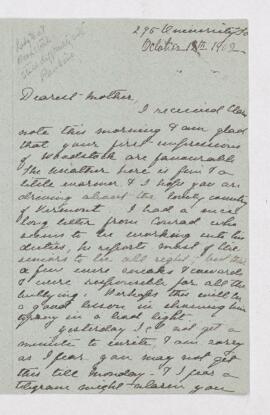 295 University St
October 18th 1902
Dearest Mother,
I received
note this morning & am glad
that your first impressions
of Woodstock are favourable
The weather here is fine & a
little warmer & I hope you are
driving about the lovely country
of Vermont. I had a nice
long letter from Conrad who
seems to be working into his
duties, he reports most of the
seniors to be all right, but that
a few mere sneaks & cowards
were responsible for all the
bullying. Perhaps this will be
a good lesson in showing him
in a bad light.
Yesterday I did not get a
minute to write. I am sorry
as I fear you may not get
this till Monday - I fear a
telegram might alarm you